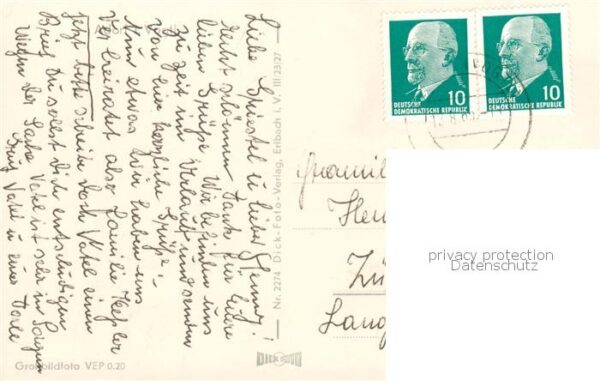 Liebe Christel u. lieber Henry!
Habt schönen Dank für Eure
lieben Grüße. Wir befinden uns
zu Zeit im Urlaub und senden
von hier herzliche Grüße!
Nun etwas Wir haben uns
Verheiratet also Familie Kessler
Jetzt bitte schreibe doch Vatel einen
Brief Du sollst Dich entschuldigen
Wegen der Sache Vatel ist sehr in Sorgen
Vatel u. eure
Nr. 2274 Dick-Foto-Verlag, Erlbach i. V. III/23/27
Großbildfoto VEP 0,20
DICK FOTO
10
DEUTSCHE
DEMOKRATISCHE REPUBLIK
10
DEUTSCHE
DEMOKRATISCHE REPUBLIK
Familie
Hen
Zü
Lang
privacy protection
Datenschutz